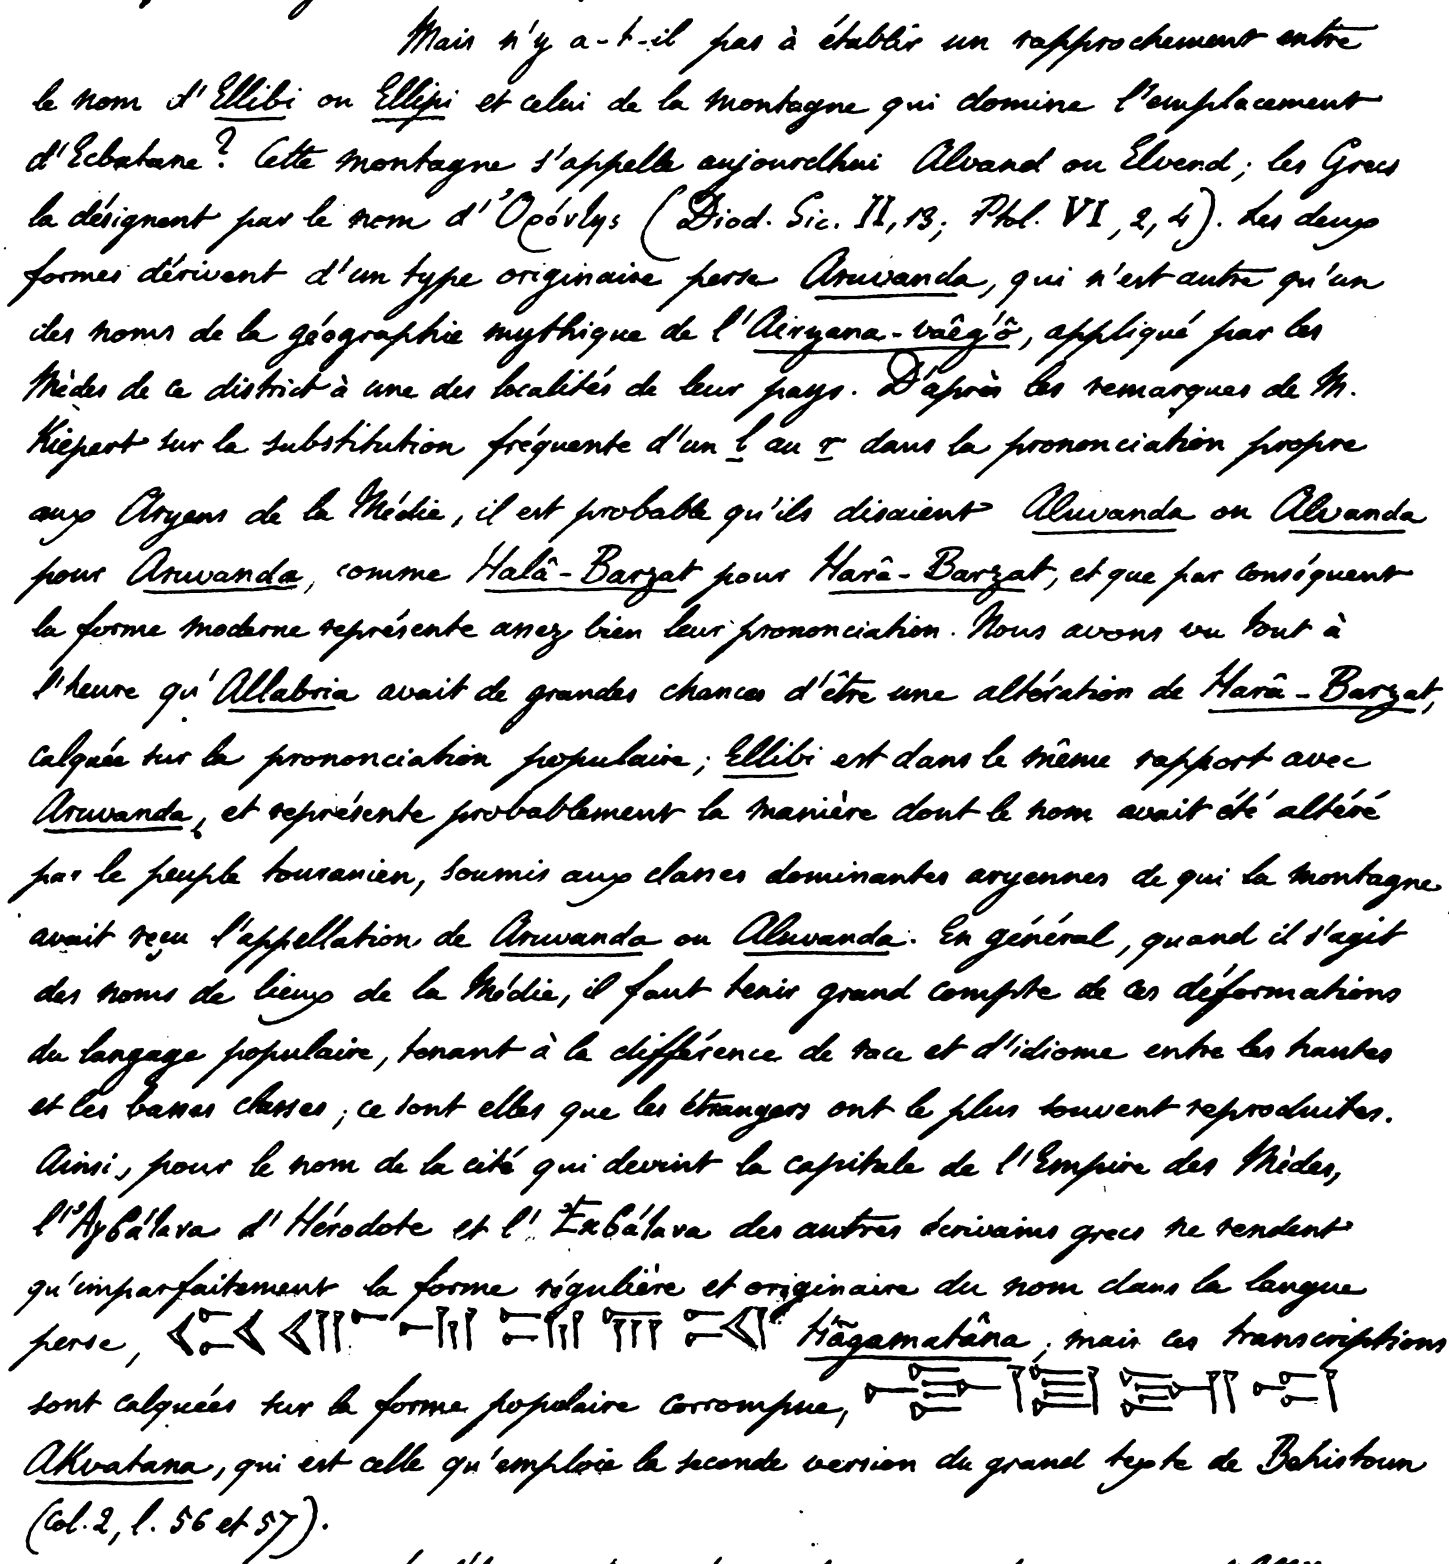 Mais n'y a-t-il pas à établir un rapprochement entre
le nom d'Ellibi ou Ellipi et celui de la montagne qui domine l'emplacement
d'Ecbatane? Cette montagne s'appelle aujourdhui Alvand ou Elvend; les Grecs
la désignent par le nom d'Ὀρόντης (Diod. Sic. II, 13; Ptol. VI, 2, 4). Les deux
formes dérivent d'un type originaire perse Aruvanda, qui n'est autre qu'un
des noms de la géographie mythique de l'Airyana-vaêg'ô, appliqué par les
Mèdes de ce district à une des localités de leur pays. D'après les remarques de M.
Kiepert sur la substitution fréquente d'un l au r dans la prononciation propre
aux Aryens de la Médie, il est probable qu'ils disaient Aluvanda ou Alvanda
pour Aruvanda, comme Halâ-Barzat pour Harâ-Barzat, et que par conséquent
la forme moderne représente assez bien leur prononciation. Nous avons vu tout à
l'heure qu'Allabria avait de grandes chances d'être une altération de Harâ-Barzat,
calquée sur la prononciation populaire; Ellibi est dans le même rapport avec
Aruvanda, et représente probablement la manière dont le nom avait été altéré
par le peuple touranien, soumis aux classes dominantes aryennes de qui la montagne
avait reçu l'appellation de Aruvanda ou Aluvanda. En général, quand il s'agit
des noms de lieux de la Médie, il faut tenir grand compte de ces déformations
du langage populaire, tenant à la différence de race et d'idiome entre les hautes
et les basses classes; ce sont elles que les étrangers ont le plus souvent reproduites.
Ainsi, pour le nom de la cité qui devint la capitale de l'Empire des Mèdes,
l'Ἀγβάτανα d'Hérodote et l'Ἐκβάτανα des autres écrivains grecs ne rendent
qu'imparfaitement la forme régulière et originaire du nom dans la langue
perse, Hãgamatâna; mais ces transcriptions
sont calquées sur la forme populaire corrompue,
Akvatana, qui est celle qu'emploie la seconde version du grand texte de Behistoun
(Col. 2, l. 56 et 57).